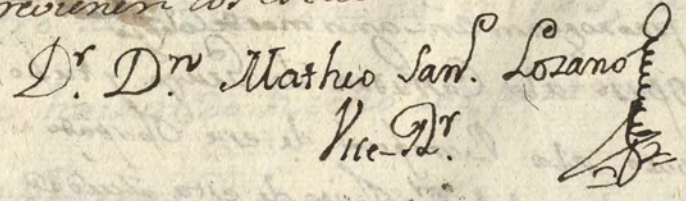 Dr. Dn. Matheo San. Lozano
Vice-Rr.